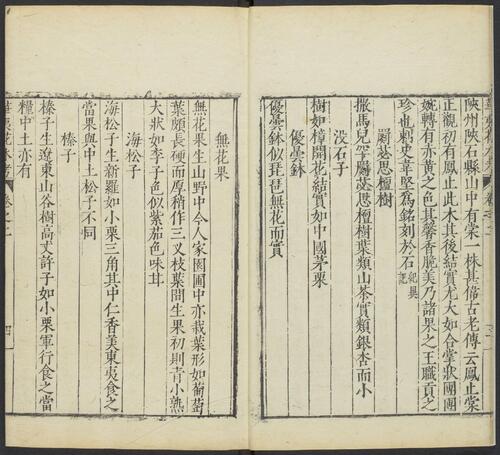 陝州陝石縣山中有棠一株甚偹古老傳云鳳止棠
正觀初有鳳止此木其後結實尤大如合掌狀團團
婉轉有赤黃之色其馨香脆美乃諸果之王職貢之
珍也刺史韋堅爲銘刻於石紀異記
罽宓思檀樹
撒馬兒罕罽宓思檀樹葉類山茶實類銀杏而小
没石子
樹如樟開花結實如中國茅栗
優曇鉢
優曇鉢似琵琶無花而實
無花果
無花果生山野中今人家園圃中亦栽葉形如葡萄
葉頗長硬而厚稍作三叉枝葉間生果初則青小熟
大狀如李子色似紫茄色味甘
海松子
海松子生新羅如小栗三角其中仁香美東夷食之
當果與中土松子不同
榛子
榛子生遼東山谷樹高丈許子如小栗軍行食之當
糧中土亦有